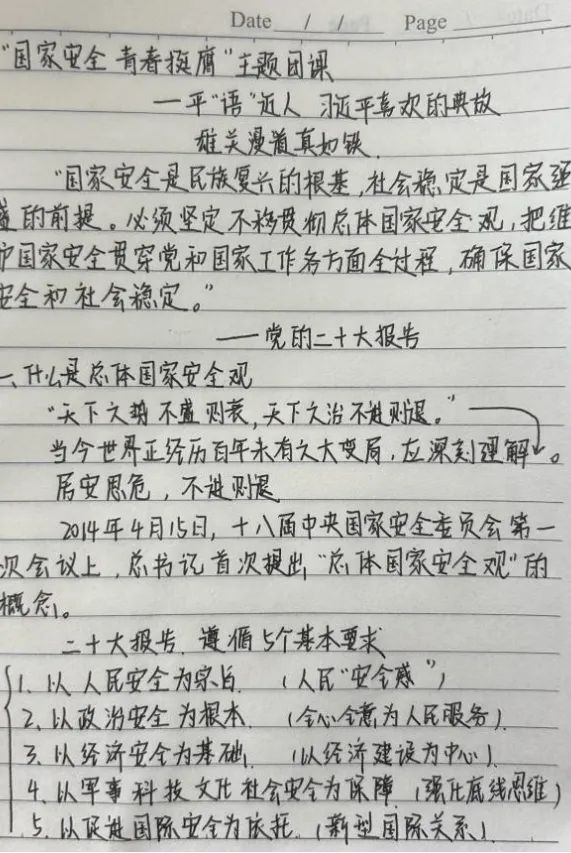 Date / / Page
"国家安全 青春挺膺"主题团课
一平"语"近人 习近平喜欢的典故
雄关漫道真如铁
"国家安全是民族复兴的根基,社会稳定是国家强
盛的前提。必须坚定不移贯彻总体国家安全观,把维
护国家安全贯穿党和国家工作各方面全过程,确保国家
安全和社会稳定。"
——党的二十大报告
一、什么是总体国家安全观
"天下之势不盛则衰,天下之治不进则退。"
当今世界正经历百年未有之大变局,应深刻理解。
居安思危,不进则退
2014年4月15日,十八届中央国家安全委员会第一
次会议上,总书记首次提出"总体国家安全观"的
概念。
二十大报告.遵循5个基本要求
1. 以人民安全为宗旨.(人民"安全感")
2. 以政治安全为根本.(全心全意为人民服务)
3. 以经济安全为基础.(以经济建设为中心)
4. 以军事科技文化社会安全为保障(强化底线思维)
5. 以促进国际安全为依托.(新型国际关系)